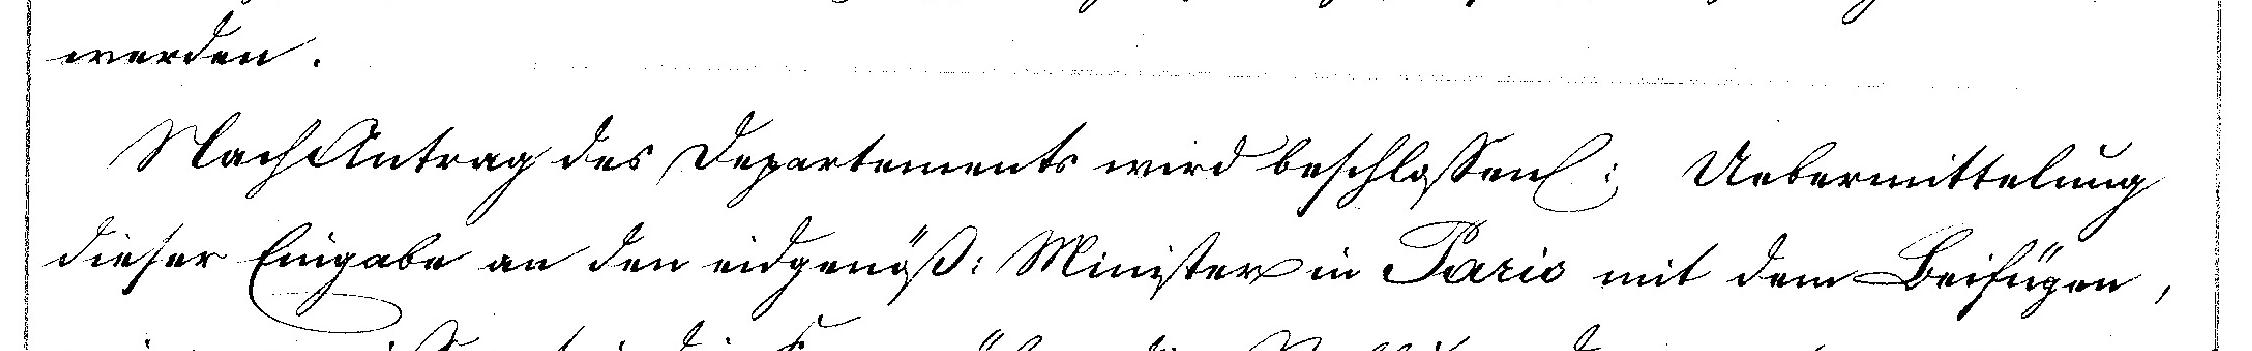 werden.
Nach Antrag des Departements wird beschlossen: Uebermittelung
dieser Eingabe an den eidgenöß: Minister in Paris mit dem Beifügen,